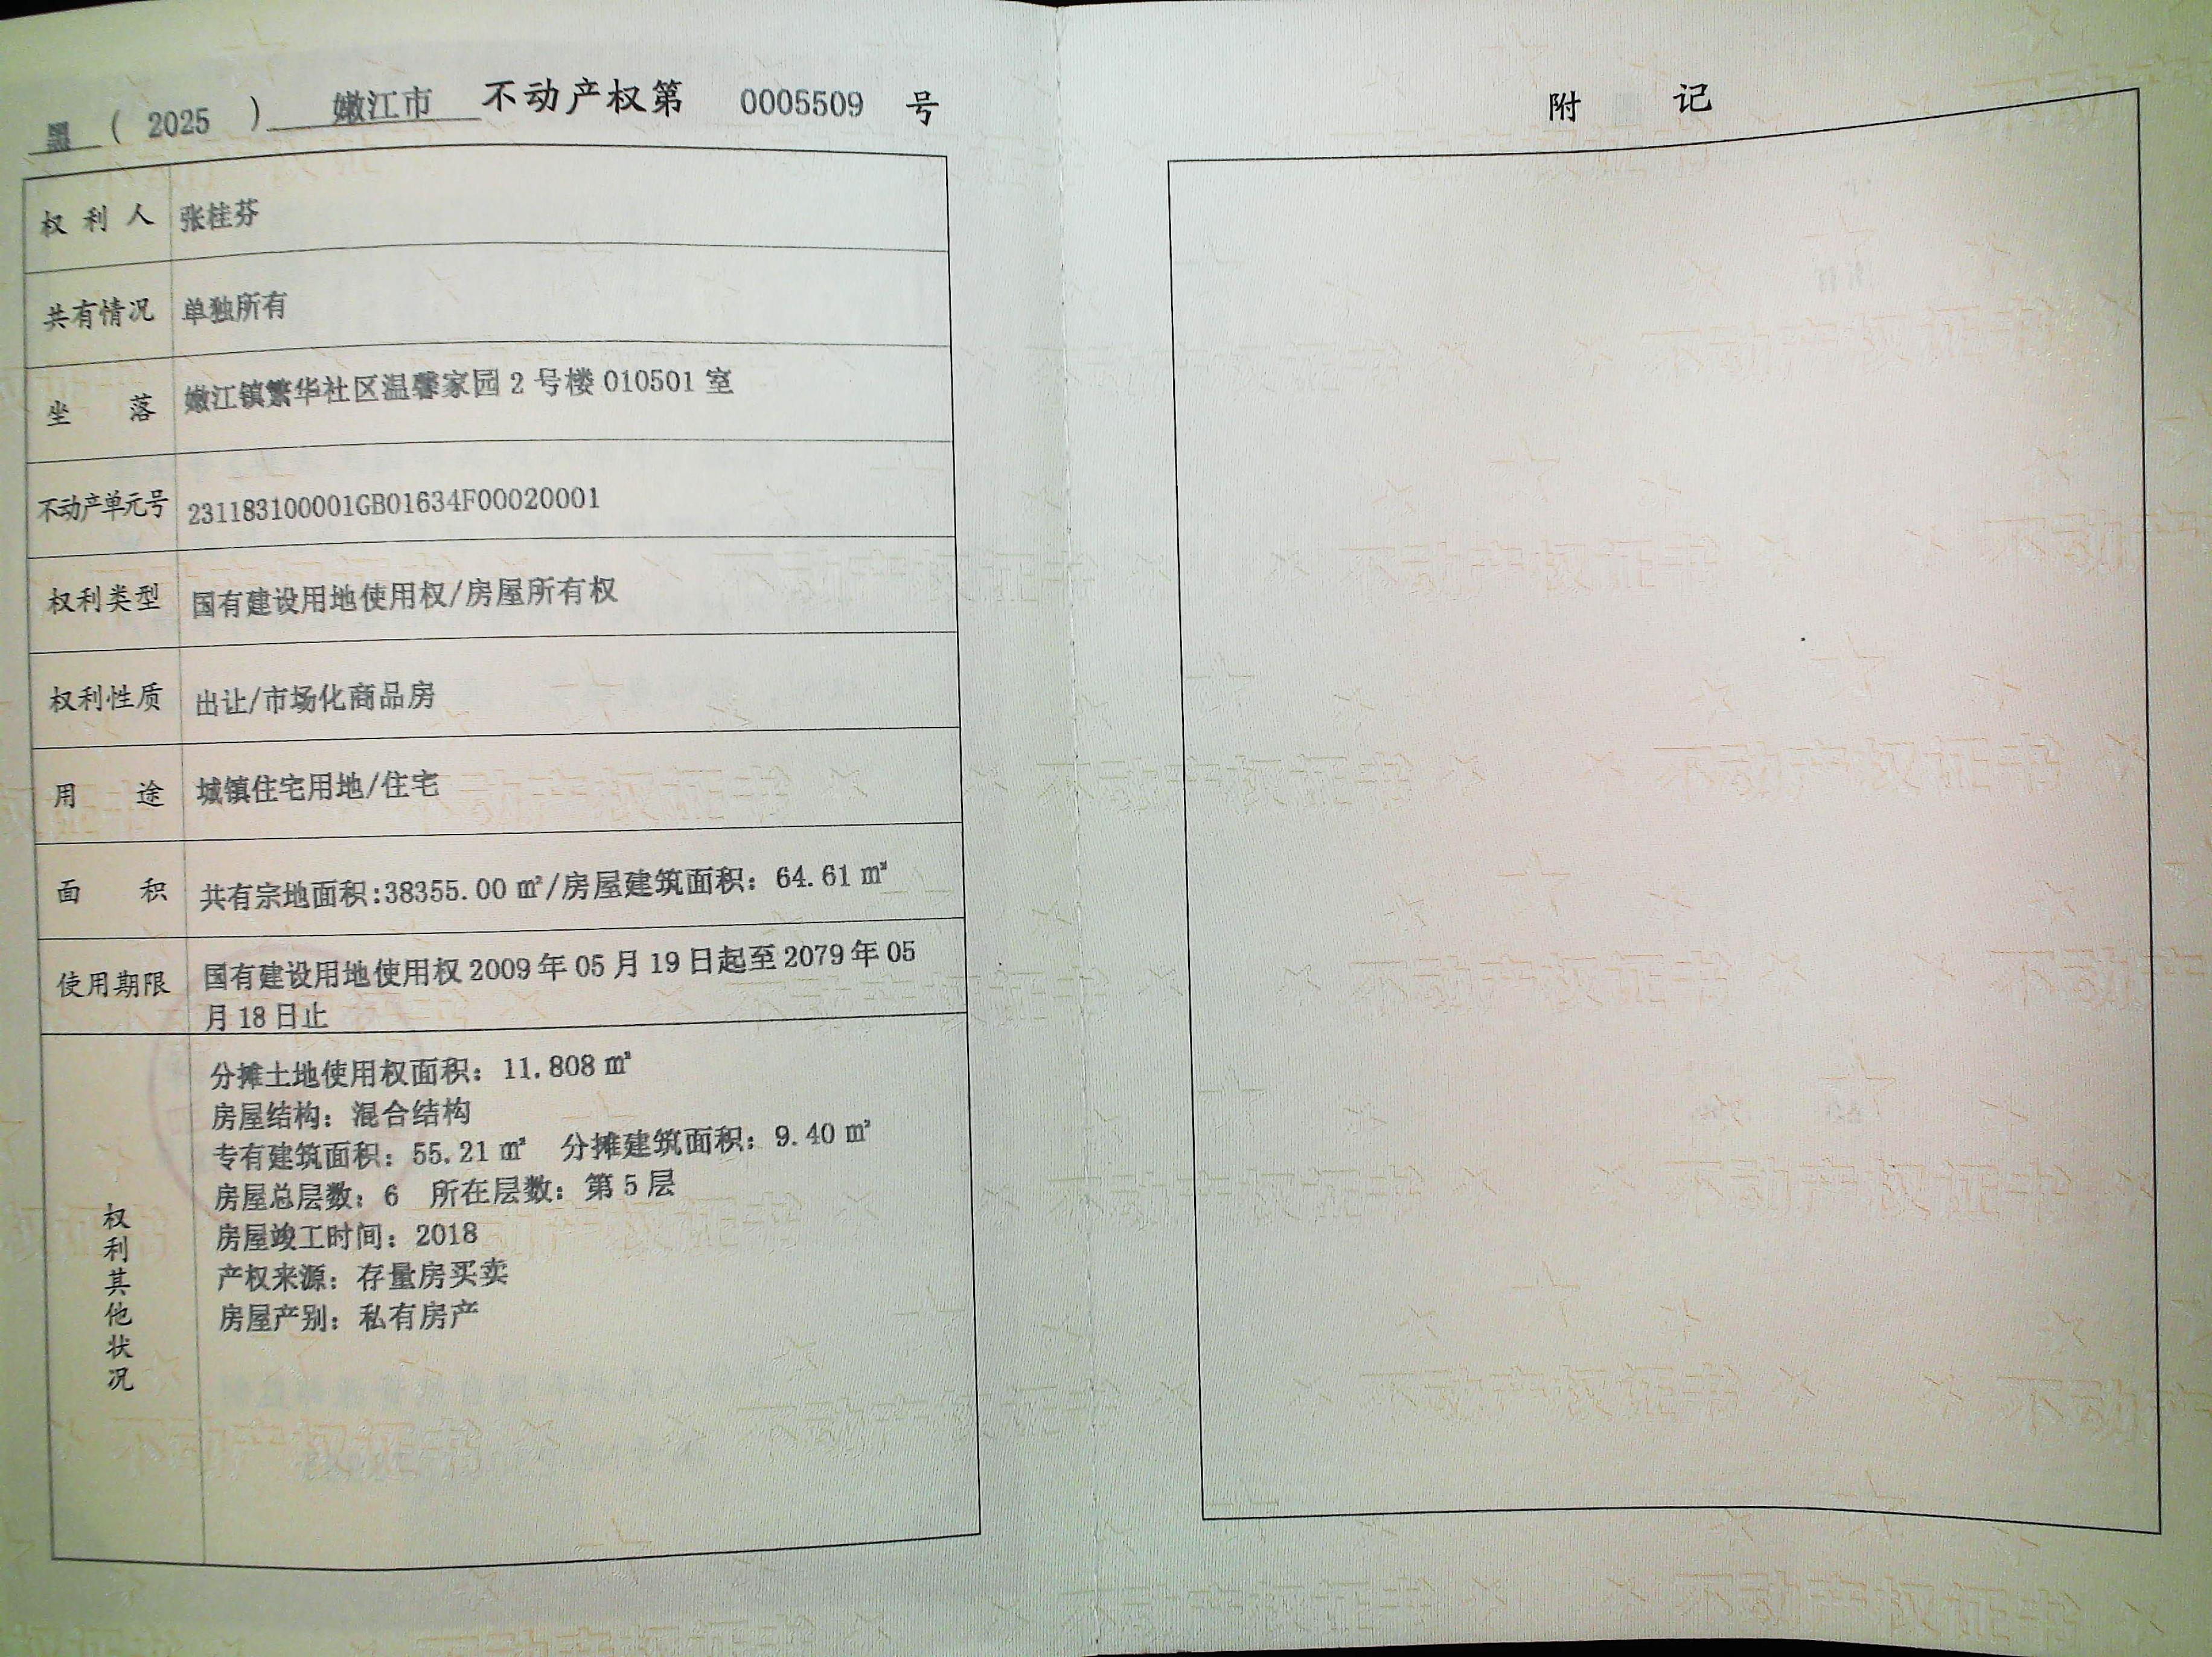 黑（2025）嫩江市不动产权第 0005509 号
权利人 张桂芬
共有情况 单独所有
坐落 嫩江镇繁华社区温馨家园2号楼010501室
不动产单元号 231183100001GB01634F00020001
权利类型 国有建设用地使用权/房屋所有权
权利性质 出让/市场化商品房
用途 城镇住宅用地/住宅
面积 共有宗地面积:38355.00㎡/房屋建筑面积：64.61㎡
使用期限 国有建设用地使用权2009年05月19日起至2079年05
月18日止
权利其他状况
分摊土地使用权面积：11.808㎡
房屋结构：混合结构
专有建筑面积：55.21㎡ 分摊建筑面积：9.40㎡
房屋总层数：6 所在层数：第5层
房屋竣工时间：2018
产权来源：存量房买卖
房屋产别：私有房产
附记